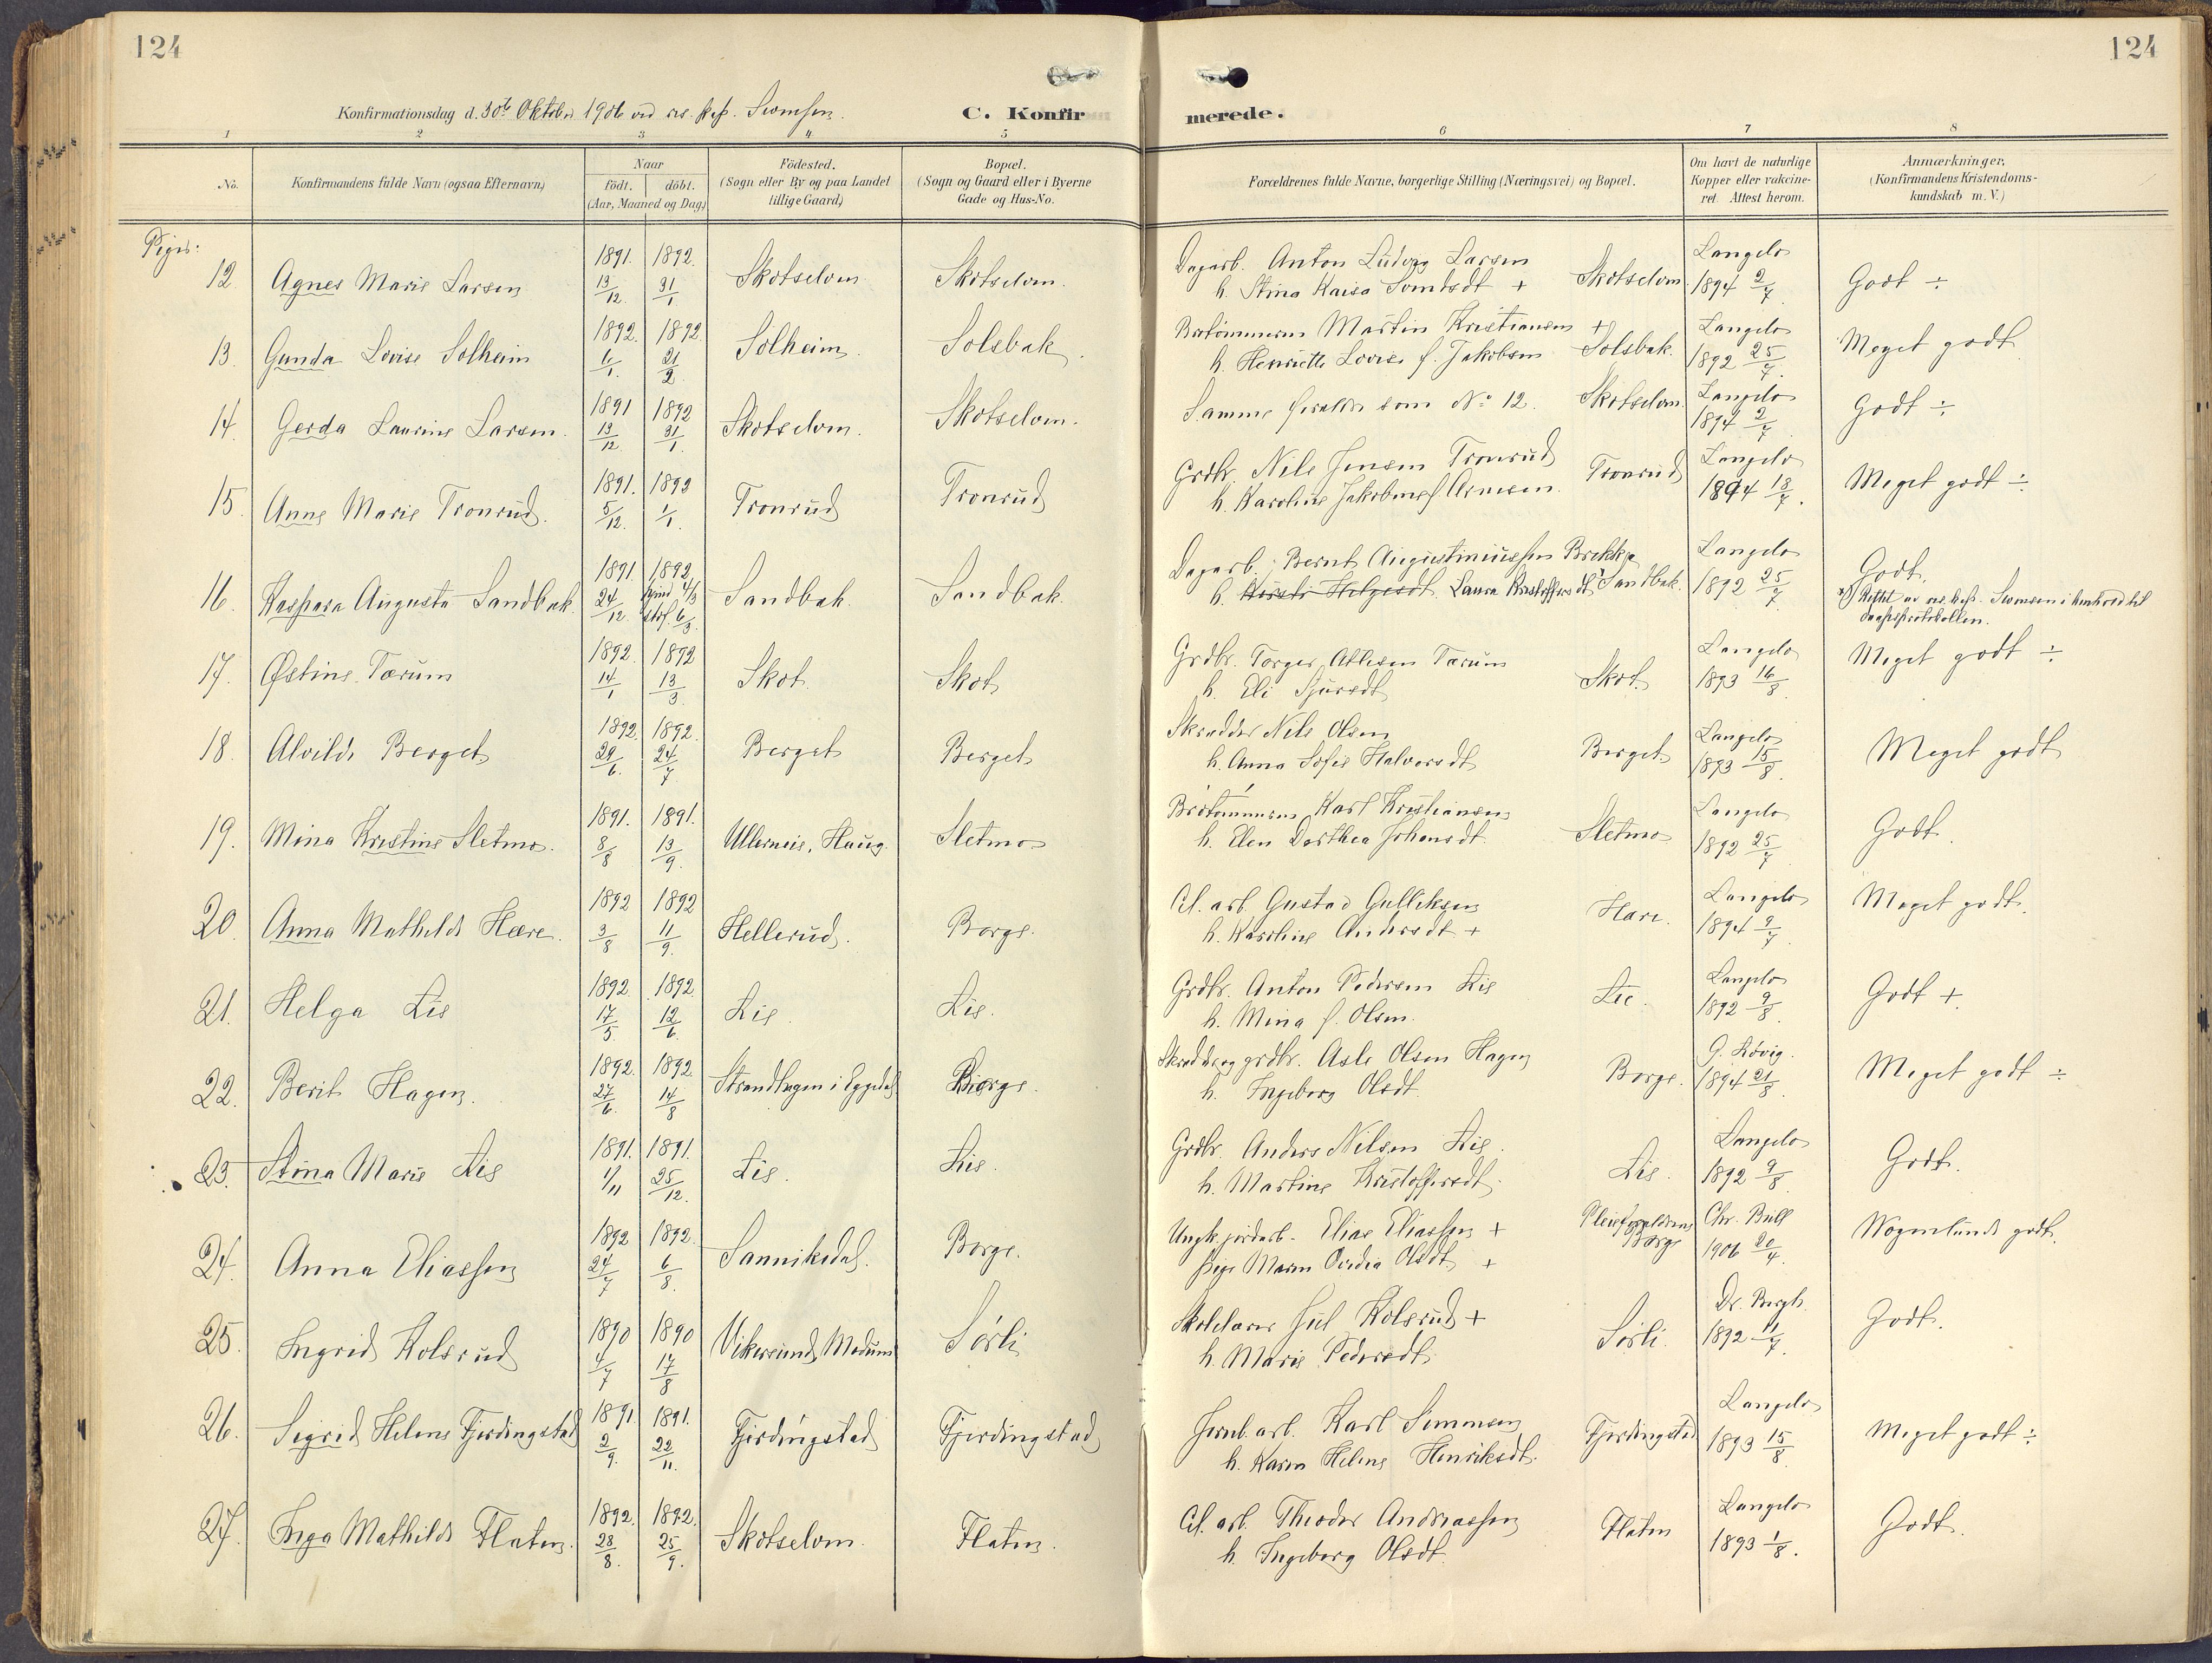 124
124
Konfirmationsdag d. 30te Oktober 1906 ved res. kap. Svomsen.
C. Konfirmerede.
1 2 3 4 5 6 7 8
No.
Konfirmandens fulde Navn (ogsaa Efternavn)
Naar
födt. döbt.
(Aar, Maaned og Dag)
Födested.
(Sogn eller By og paa Landet
tillige Gaard)
Bopæl.
(Sogn og Gaard eller i Byerne
Gade og Hus-No.
Forældrenes fulde Navne, borgerlige Stilling (Næringsvei) og Bopæl.
Om havt de naturlige
Kopper eller vakcine-
ret. Attest herom.
Anmærkninger.
(Konfirmandens Kristendoms-
kundskab m. V.)
Piger:
12. Agnes Marie Larsen 1891. 13/12. 1892. 31/1 Skotselven Skotselven. Dagarb. Anton Ludvig Larsen
h. Stina Kaisa Svendsdt + Skotselven. Langelo 1894 2/7 Godt ÷
13. Gunda Lovise Solheim 1892. 6/1. 1892. 21/2 Solheim. Solsbak. Brotömmerm Martin Kristiansen +
h. Henriette Lovise f. Jakobsen Solsbak. Langelo 1892 25/7. Meget godt
14. Gerda Laurine Larsen. 1891 13/12. 1892 31/1. Skotselven. Skotselven. Samme forældre som No 12. Skotselven. Langelo 1894 2/7 Godt ÷
15. Anne Marie Tronrud. 1891. 5/12. 1892 1/1. Tronrud Tronrud Grdbr. Nils Jensen Tronrud
h. Karoline Jakobine f. Arnesen. Tronrud Langelo 1894 18/7. Meget godt ÷
16. Kaspara Augusta Sandbak. 1891. 24/12. 1892 hjemd 4/3 stadf. 6/3. Sandbak. Sandbak. Dagarb. Bernt Augustiniussen Brekke
h. Kirsti Helgesdt. Laura Kristoffersdt Sandbak. Langelo 1892 25/7 Godt.
x) Rettet av res. kap. Svomsen i henhold til
daapsprotokollen.
17. Østine Tærum 1892. 14/1 1892 13/3. Skot Skot Grdbr. Torger Atlesen Tærum
h. Eli Sjuresdt Skot. Langelo 1893 16/8. Meget godt ÷
18. Alvilde Berget 1892. 29/6. 1892. 24/7 Berget Berget Skrædder Nils Olsen
h. Anna Sofie Halvorsdt Berget Langelo 1893 15/8. Meget godt
19. Mina Kristine Sletmo. 1891. 8/8 1891. 13/9. Ullerneie, Haug Sletmo Brotömmerm Karl Kristiansen
h. Elen Dorthea Johansdt. Sletmo Langelo 1892 25/7 Godt.
20. Anna Mathilde Hære. 1892 3/8 1892 11/9. Hellerud. Borge. Cel. arb. Gustav Gulliksen
h. Karoline Andersdt + Hære. Langelo 1894 9/7. Meget godt.
21. Helga Lie 1892. 17/5. 1892 12/6. Lie. Lie. Grdbr. Anton Pedersen Lie
h. Mina f. Olsen. Lie. Langelo 1892 9/8. Godt +
22. Berit Hagen. 1892. 27/6. 1892. 14/8 Strandhagen i Eggedal Borge. Skrædder og grdbr. Asle Olsen Hagen
h. Ingeborg Olsdt. Borge. G. Rövig. 1894 21/8 Meget godt ÷
23. Stina Marie Lie 1891. 1/11 1891. 25/12. Lie. Lie. Grdbr. Anders Nilsen Lie.
h. Martine Kristoffersdt. Lie. Langelo 1892 9/8 Godt.
24. Anna Eliassen 1892 24/7 1892. 6/8. Sannikedal. Borge. Ungk. jordarb. Elias Eliassen +
pige Maren Ovidia Olsdt + Pleieforældrene Borge Chr. Bull 1906 20/4. Nogenlunde godt.
25. Ingrid Kolsrud 1890 4/7 1890 17/8 Vikersund, Modum Sörli Skolelærer Jul Kolsrud +
h. Marie Pedersdt. Sörli. Dr. Bergh. 1892 11/7. Godt.
26. Sigrid Helene Fjerdingstad 1891. 2/9. 1891. 22/11. Fjerdingstad Fjerdingstad Jernb. arb. Karl Simensen
h. Karen Helene Henriksdt. Fjerdingstad Langelo 1893 15/8. Meget godt ÷
27. Inga Mathilde Flaten. 1892. 28/8. 1892. 25/9. Skotselven Flaten. Cel. arb. Theodor Andreassen
h. Ingeborg Olsdt. Flaten Langelo 1893 1/8. Godt.